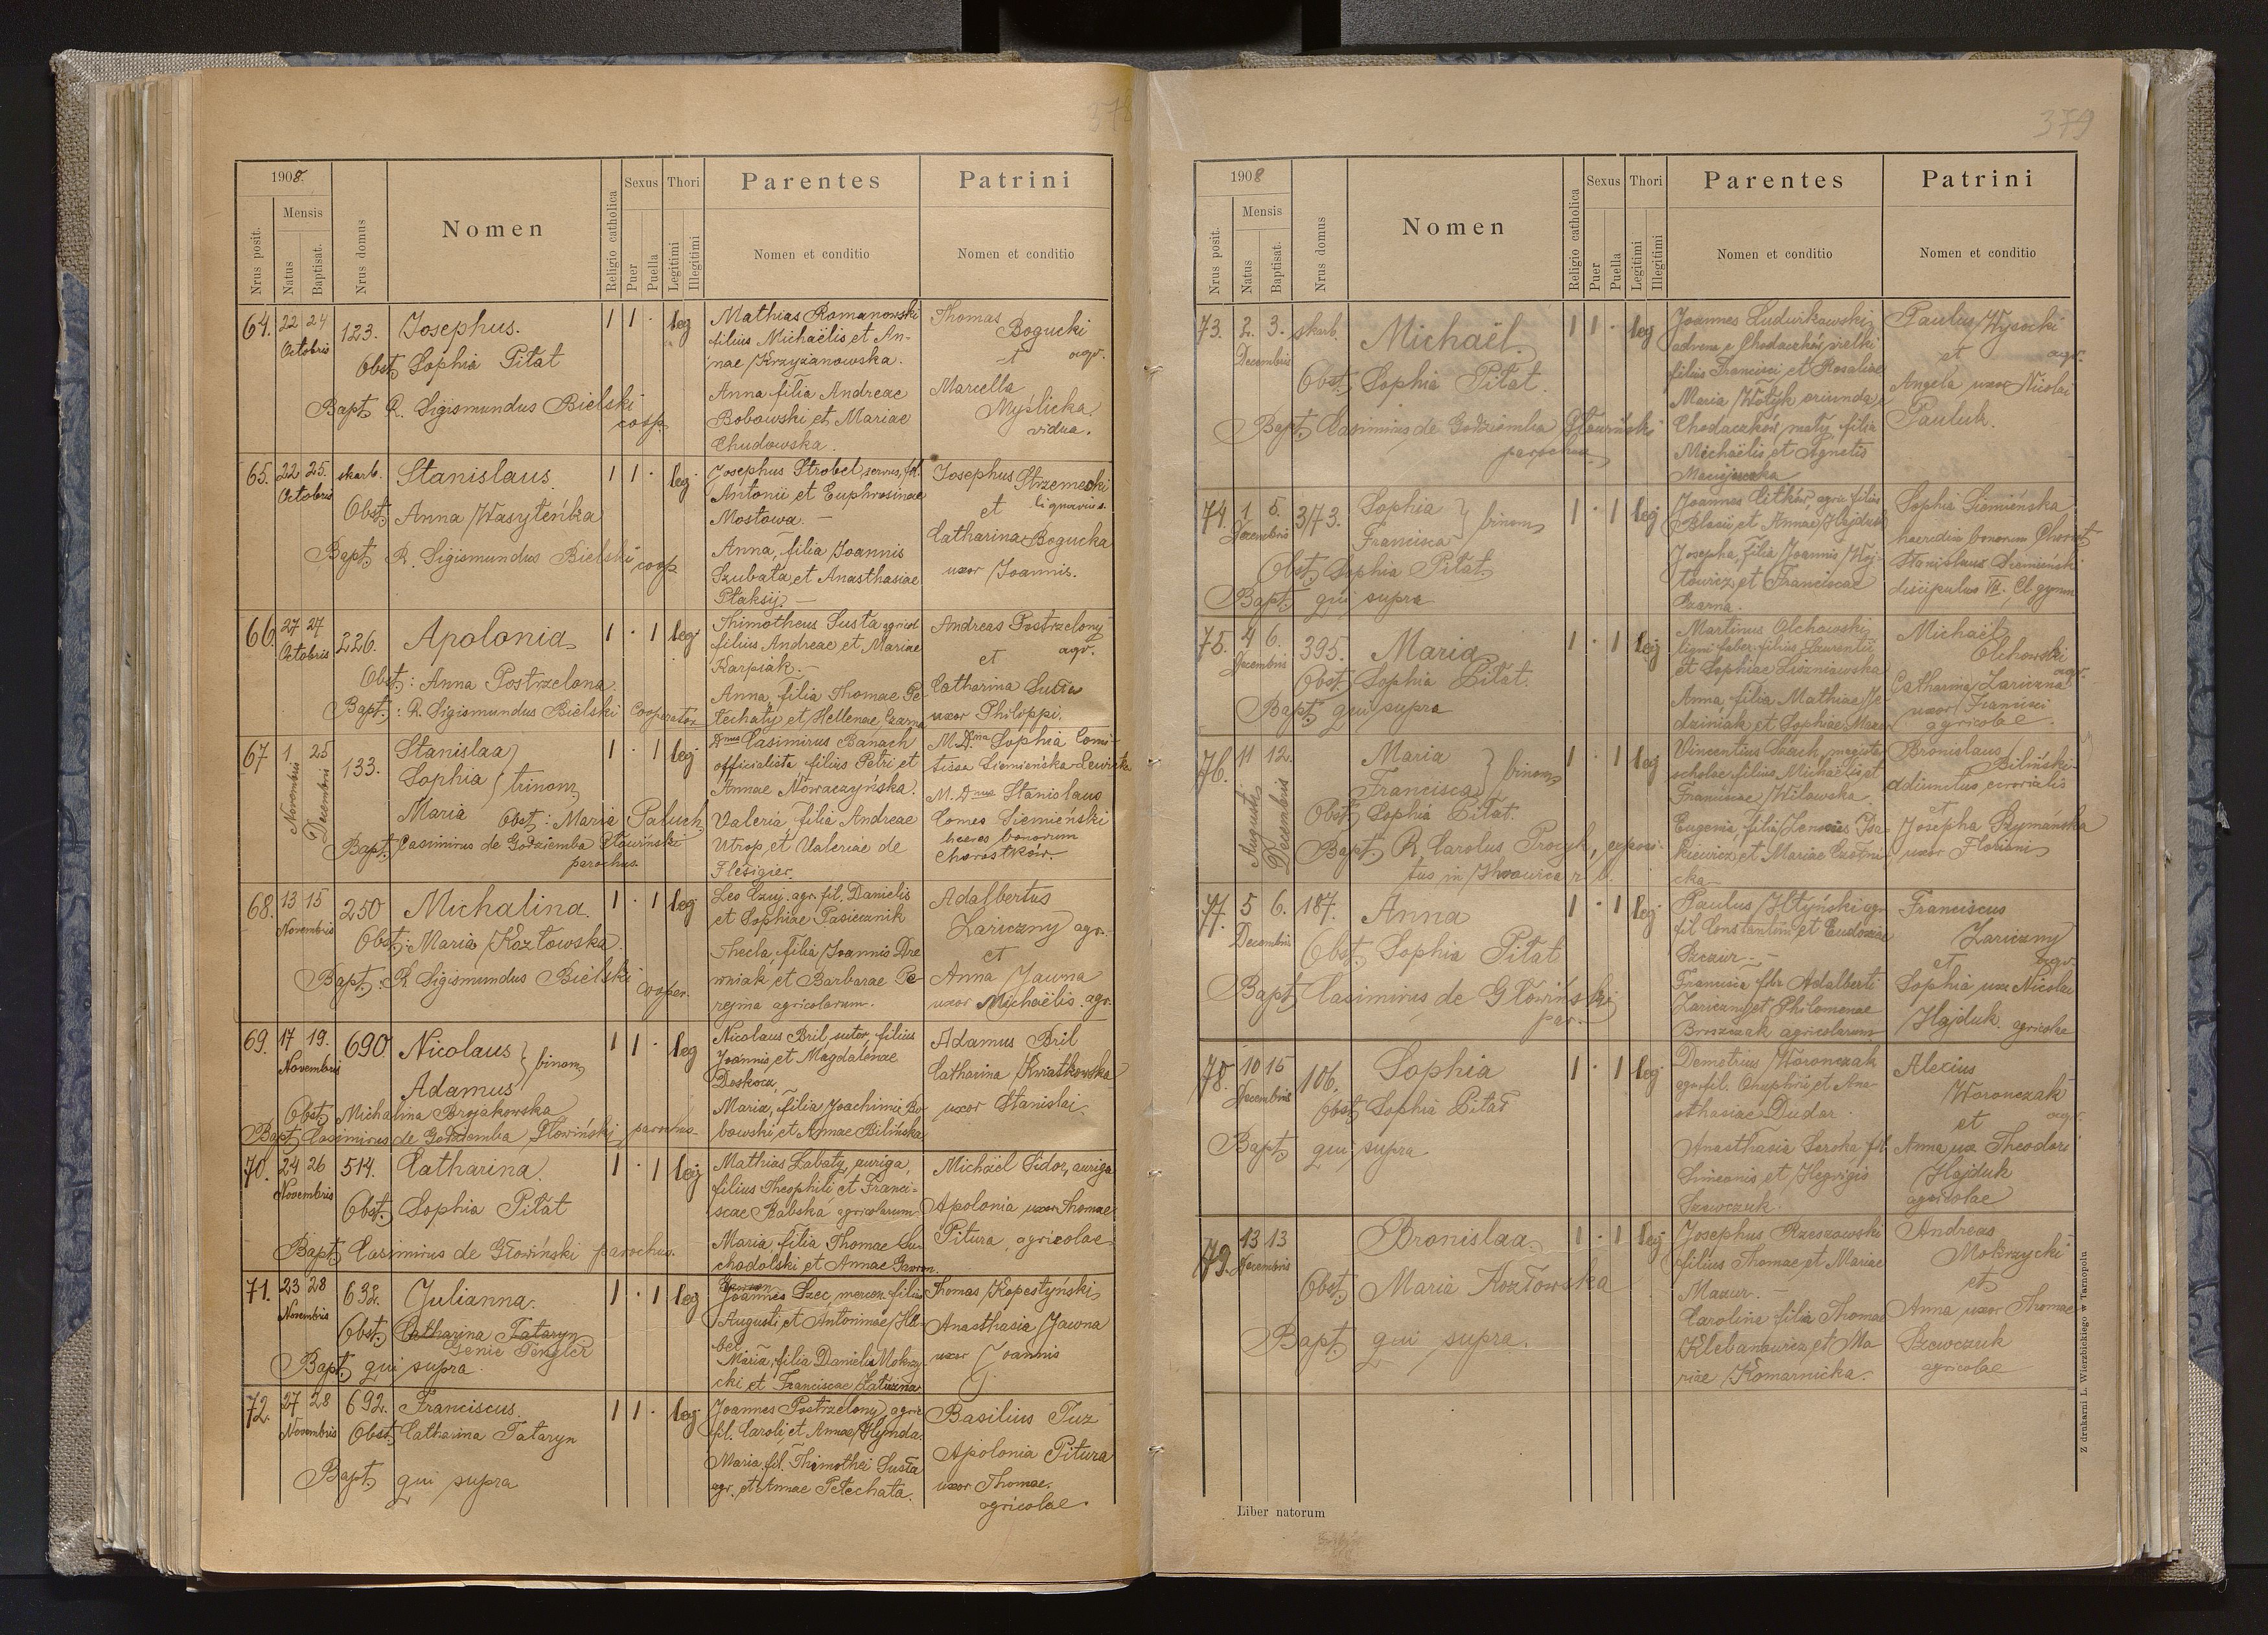 378
1908.
Nrus posit.
Mensis
Natus
Baptisat.
Nrus domus
Nomen
Religio catholica
Sexus
Puer
Puella
Thori
Legitimi
Illegitimi
Parentes
Nomen et conditio
Patrini
Nomen et conditio
64. 22 24 Octobris 123. Josephus. 1 1 · leg
Obst. Sophia Pitat
Bapt. R. Sigismundus Bielski coop.
Mathias Romanowski
filius Michaëlis et An-
nae Krzyżanowska.
Anna filia Andreae
Bobowski et Mariae
Chudowska.
Thomas
Bogucki
et agr.
Marcella
Myślicka,
vidua.
65. 22 25. Octobris skarb. Stanislaus 1 1 · leg
Obst. Anna Wasyteńka
Bapt. R. Sigismundus Bielski coop
Josephus Strobel servus, fil.
Antonii et Euphrosinae
Mostowa. —
Anna, filia Joannis
Szubata et Anasthasiae
Ptaksij. —
Josephus Strzemecki
et lignarius.
Catharina Bogucka
uxor Joannis.
66. 27 27 Octobris 226. Apolonia 1 · 1 leg
Obst.: Anna Postrzelona
Bapt.: R. Sigismundus Bielski Cooperator
Thimotheus Susta agricol
filius Andreae et Mariae
Karpiak. —
Anna, filia Thomae Pe
techaty et Hellenae Czarna
Andreas Postrzelony
et agr.
Catharina Susta
uxor Philoppi.
67 1. Novembris 25 Decembris 133. Stanislaa
Sophia } trinom 1 · 1 leg
Maria Obst.: Maria Paluch
Bapt. Casimirus de Godziemba Głowiński
parochus.
Dnus Casimirus Banach
officialista filius Petri et
Annae Nowaczyńska.
Valeria filia Andreae
Utrop et Valeriae de
Flesigier.
M. Dna Sophia Comi-
tissa Siemieńska-Lewicka
M. Dnus Stanislaus
Comes Siemieński
heres bonorum
Chorostków.
68. 13 15 Novembris 250 Michalina. 1 · 1 leg
Obst.: Maria Kozłowska.
Bapt.: R Sigismundus Bielski cooper.
Leo Czuj agr. fil. Danielis
et Sophiae Pasiecznik
Thecla, filia Joannis Dre
wniak et Barbarae Pe
regina agricolarum.
Adalbertus
Zariczny agr.
et
Anna Jawna
uxor Michaëlis agr.
69. 17 19. Novembris 690 Nicolaus } binom 1 1 · leg
Adamus
Obst. Michalina Brojakowska
Bapt. Casimirus de Godziemba Głowiński parochus
Nicolaus Bril, sutor, filius
Joannis et Magdalenae
Doskocz,
Maria, filia Joachimi Bo
bowski et Annae Bilińska
Adamus Bril
Catharina Kwiatkowska
uxor Stanislai
70. 24 26 Novembris 514. Catharina. 1 · 1 leg
Obst. Sophia Pitat
Bapt. Casimirus de Głowiński parochus.
Mathias Labaty auriga,
filius Theophili et Franci-
scae Babska agricolarum
Maria filia Thomae Su-
chodolski et Annae Gawron.
Michaël Sidor, auriga
Apolonia uxor Thomae
Pitura, agricolae
71. 23 28 Novembris 632. Julianna. 1 · 1 leg
Obst. Catharina Tataryn
Genie Tengler
Bapt. qui supra.
Joannes Szec, mercen. filius
Augusti et Antoninae Ha-
bel.
Maria, filia Danielis Mokrzy
cki et Franciscae Zatuzna
Thomas Kopestyński
Anasthasia Jawna
uxor Joannis
72. 27 28 Novembris 692. Franciscus. 1 1 · leg
Obst. Catharina Tataryn
Bapt. qui supra
Joannes Postrzelony agric
fil. Caroli et Annae Hynda.
Maria fil. Thimothei Susta
agr. et Annae Petechata.
Basilius Tuz
Apolonia Pitura
uxor Thomae.
agricolae.
379
1908
Nrus posit.
Mensis
Natus
Baptisat.
Nrus domus
Nomen
Religio catholica
Sexus
Puer
Puella
Thori
Legitimi
Illegitimi
Parentes
Nomen et conditio
Patrini
Nomen et conditio
73. 2. 3. Decembris skarb. Michaël. 1 1 · leg
Obst. Sophia Pitat.
Bapt. Casimirus de Godziemba Głowiński
parochus
Joannes Ludwikowski
advena e Chodaczków wielki
filius Francisci et Rosaliae
Maria Wotyk oriunda e
Chodaczków mały filia
Michaëlis et Agnetis
Maciejowska
Paulus Wysocki
et agr.
Angela uxor Nicolai
Pauluk.
74. 1 6. Decembris 373. Sophia
Francisca } binom 1 · 1 leg
Obst. Sophia Pitat.
Bapt. qui supra
Joannes Citków, agric filius
Blasii et Annae Hajduk
Josepha, filia Joannis Woj-
towicz et Franciscae
Czarna.
Sophia Siemieńska
haeredin bonorum Chorost
Stanislaus Siemieński
discipulus VII. Cl. gymn
75. 4 6. Decembris 395. Maria 1 · 1 leg
Obst. Sophia Pitat.
Bapt. qui supra
Martinus Olchowski
ligni faber filius Laurentii
et Sophiae Liszniowska
Anna, filia Mathiae Je-
dziniak et Sophiae Mazur
Michaël
Olchowski
agr.
Catharina Zariczna
uxor Francisci
agricolae.
76. 11 Augusti 12. Decembris Maria
Francisca } binom 1 · 1 leg
Obst. Sophia Pitat.
Bapt. R. Carolus Procyk, exposi-
tus in
Vincentius Szach, magister
scholae filius Michaëlis et
Franciscae Wilowska.
Eugenia, filia
kiewicz et Mariae
cka
Bronislaus
Biliński
adiunctus
et
Josepha Rzymańska
uxor Floriani
77. 5 6. Decembris 187. Anna 1 · 1 leg
Obst. Sophia Pitat
Bapt. Casimirus de Głowiński
par.
Paulus Iltyński agr
fil Constantini et Eudoxiae
Szczur. —
Francisca filia Adalberti
Zariczny et Philomenae
Broszczak agricolarum
Franciscus
Zariczny
et agr.
Sophia uxor Nicolai
Hajduk. agricolae
78. 10 15 Decembris 106. Sophia 1 · 1 leg
Obst Sophia Pitat
Bapt. qui supra
Demetrius Woronczak
agr fil. Onuphrii et Ana-
sthasiae Dudar.
Anasthasia Seroka fil
Simeonis et Hegvigis
Szewczuk.
Alexius
Woronczak
et agr.
Anna ux Theodori
Hajduk
agricolae
79. 13 13 Decembris Bronislaa. 1 · 1 leg
Obst. Maria Kozłowska
Bapt. qui supra.
Josephus Rzeszowski
filius Thomae et Mariae
Mazur. —
Carolina filia Thomae
Klebanowicz et Ma
riae Komarnicka.
Andreas
Mokrzycki
et
Anna uxor Thomae
Szewczuk
agricolae
Liber natorum
Z drukarni L. Wierzbickiego w Tarnopolu